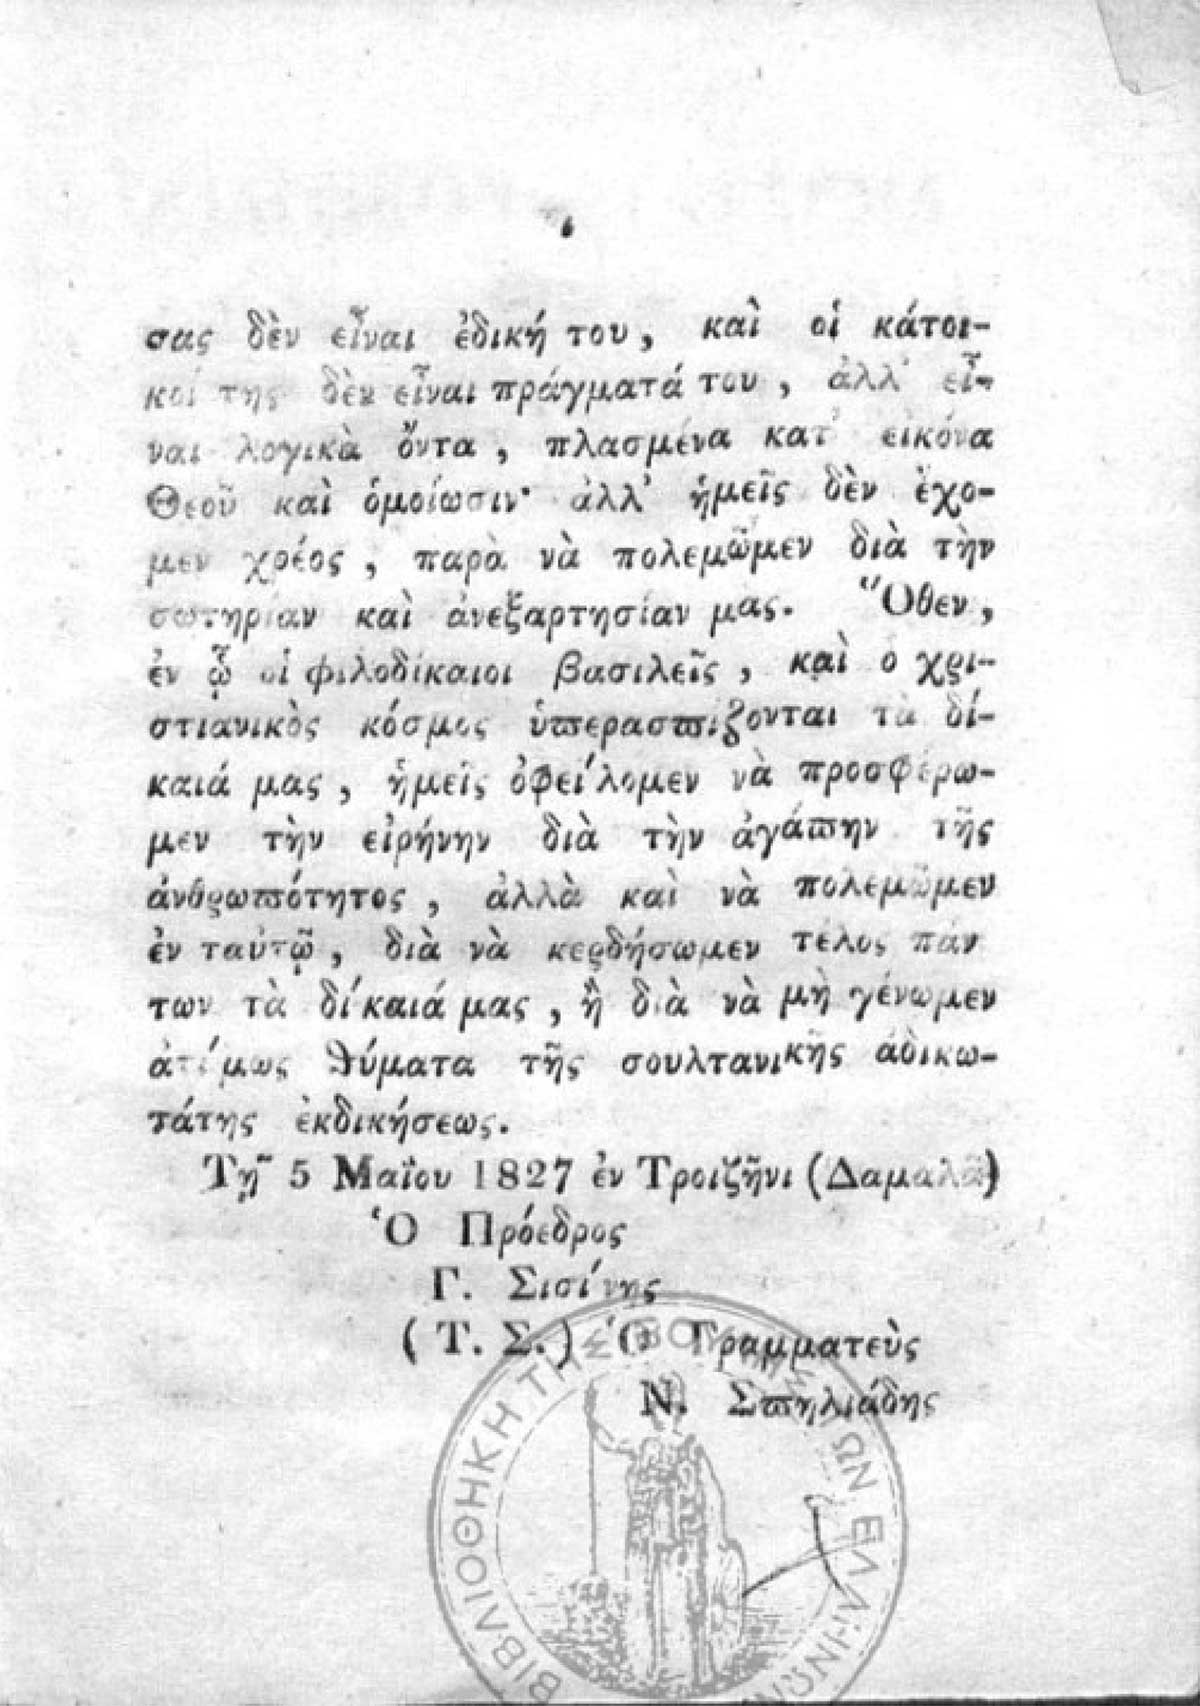 σας δὲν εἶναι ἐδική του, καὶ οἱ κάτοι-
κοί της δὲν εἶναι πράγματά του, ἀλλ' εἶ-
ναι λογικὰ ὄντα, πλασμένα κατ' εἰκόνα
Θεοῦ καὶ ὁμοίωσιν· ἀλλ' ἡμεῖς δὲν ἔχο-
μεν χρέος, παρὰ νὰ πολεμῶμεν διὰ τὴν
σωτηρίαν καὶ ἀνεξαρτησίαν μας. Ὅθεν,
ἐν ᾧ οἱ φιλοδίκαιοι βασιλεῖς, καὶ ὁ χρι-
στιανικὸς κόσμος ὑπερασπίζονται τὰ δί-
καιά μας, ἡμεῖς ὀφείλομεν νὰ προσφέρω-
μεν τὴν εἰρήνην διὰ τὴν ἀγάπην τῆς
ἀνθρωπότητος, ἀλλὰ καὶ νὰ πολεμῶμεν
ἐν ταὐτῷ, διὰ νὰ κερδήσωμεν τέλος πάν
των τὰ δίκαιά μας, ἢ διὰ νὰ μὴ γένωμεν
ἀτίμως θύματα τῆς σουλτανικῆς ἀδικω-
τάτης ἐκδικήσεως.
Τῇ 5 Μαΐου 1827 ἐν Τροιζῆνι (Δαμαλᾶ)
Ὁ Πρόεδρος
Γ. Σισίνης
(Τ. Σ.) Ὁ Γραμματεὺς
Ν. Σπηλιάδης
ΒΙΒΛΙΟΘΗΚΗ ΤΗΣ ΒΟΥΛΗΣ ΤΩΝ ΕΛΛΗΝΩΝ